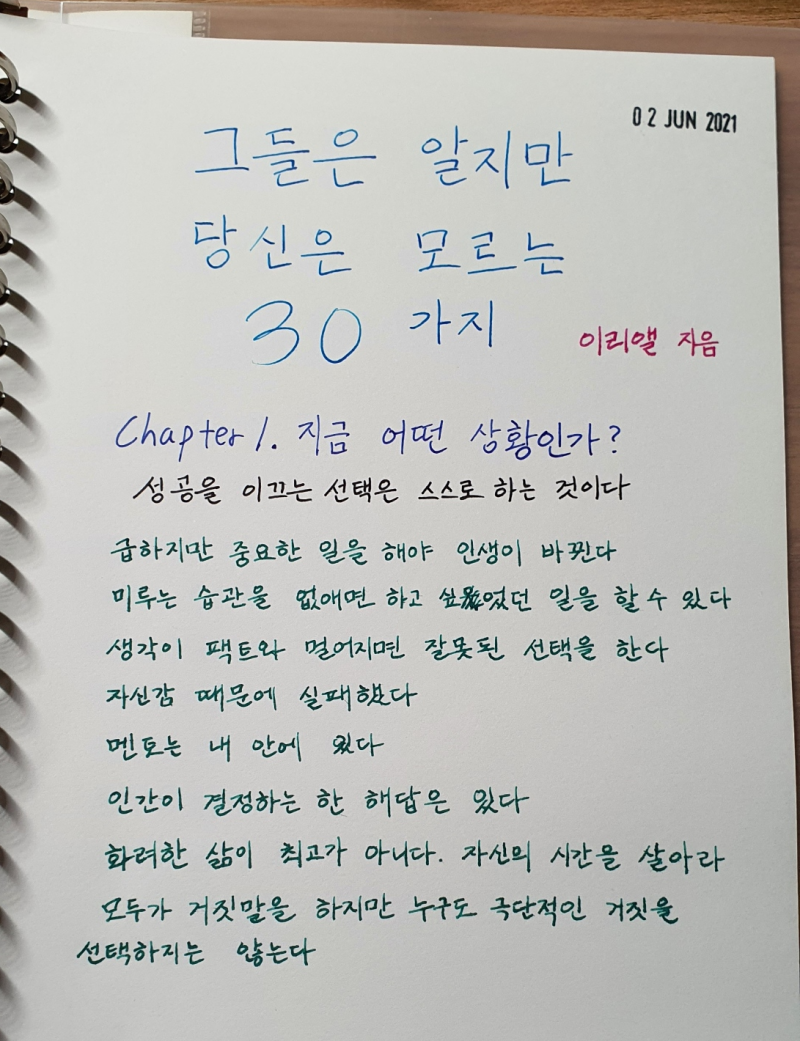 02 JUN 2021
그들은 알지만
당신은 모르는
30 가지
이리앨 지음
Chapter 1. 지금 어떤 상황인가?
성공을 이끄는 선택은 스스로 하는 것이다
급하지만 중요한 일을 해야 인생이 바뀐다
미루는 습관을 없애면 하고 싶었던 일을 할 수 있다
생각이 팩트와 멀어지면 잘못된 선택을 한다
자신감 때문에 실패했다
멘토는 내 안에 있다
인간이 결정하는 한 해답은 있다
화려한 삶이 최고가 아니다. 자신의 시간을 살아라
모두가 거짓말을 하지만 누구도 극단적인 거짓을
선택하지는 않는다